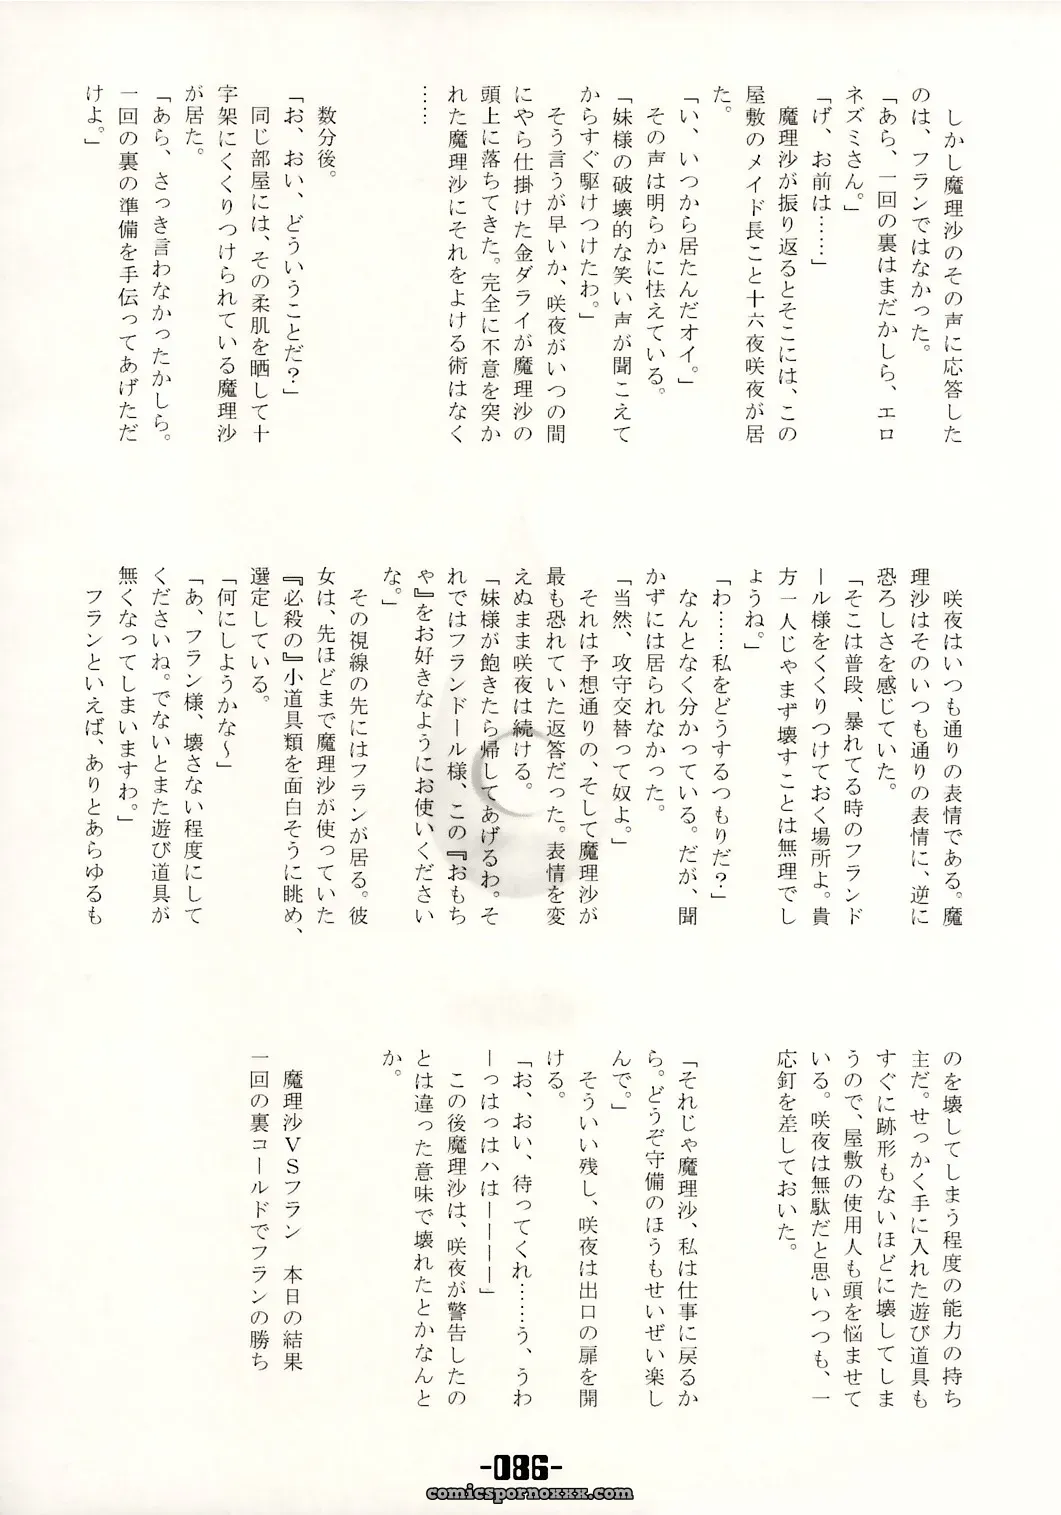 しかし魔理沙のその声に応答した
のは、フランではなかった。
「あら、一回の裏はまだかしら、エロ
ネズミさん。」
「げ、お前は……」
魔理沙が振り返るとそこには、この
屋敷のメイド長こと十六夜咲夜が居
た。
「い、いつから居たんだオイ。」
その声は明らかに怯えている。
「妹様の破壊的な笑い声が聞こえて
からすぐ駆けつけたわ。」
そう言うが早いか、咲夜がいつの間
にやら仕掛けた金ダライが魔理沙の
頭上に落ちてきた。完全に不意を突か
れた魔理沙にそれをよける術はなく
……
数分後。
「お、おい、どういうことだ？」
同じ部屋には、その柔肌を晒して十
字架にくくりつけられている魔理沙
が居た。
「あら、さっき言わなかったかしら。
一回の裏の準備を手伝ってあげただ
けよ。」
咲夜はいつも通りの表情である。魔
理沙はそのいつも通りの表情に、逆に
恐ろしさを感じていた。
「そこは普段、暴れてる時のフランド
ール様をくくりつけておく場所よ。貴
方一人じゃまず壊すことは無理でし
ょうね。」
「わ……私をどうするつもりだ？」
なんとなく分かっている。だが、聞
かずには居られなかった。
「当然、攻守交替って奴よ。」
それは予想通りの、そして魔理沙が
最も恐れていた返答だった。表情を変
えぬまま咲夜は続ける。
「妹様が飽きたら帰してあげるわ。そ
れではフランドール様、この『おもち
ゃ』をお好きなようにお使いください
な。」
その視線の先にはフランが居る。彼
女は、先ほどまで魔理沙が使っていた
『必殺の』小道具類を面白そうに眺め、
選定している。
「何にしようかな～」
「あ、フラン様、壊さない程度にして
くださいね。でないとまた遊び道具が
無くなってしまいますわ。」
フランといえば、ありとあらゆるも
のを壊してしまう程度の能力の持ち
主だ。せっかく手に入れた遊び道具も
すぐに跡形もないほどに壊してしま
うので、屋敷の使用人も頭を悩ませて
いる。咲夜は無駄だと思いつつも、一
応釘を差しておいた。
「それじゃ魔理沙、私は仕事に戻るか
ら。どうぞ守備のほうもせいぜい楽し
んで。」
そういい残し、咲夜は出口の扉を開
ける。
「お、おい、待ってくれ……う、うわ
ーっはっはハは――――」
この後魔理沙は、咲夜が警告したの
とは違った意味で壊れたとかなんと
か。
魔理沙ＶＳフラン　本日の結果
一回の裏コールドでフランの勝ち
-086-
comicspornoxxx.com